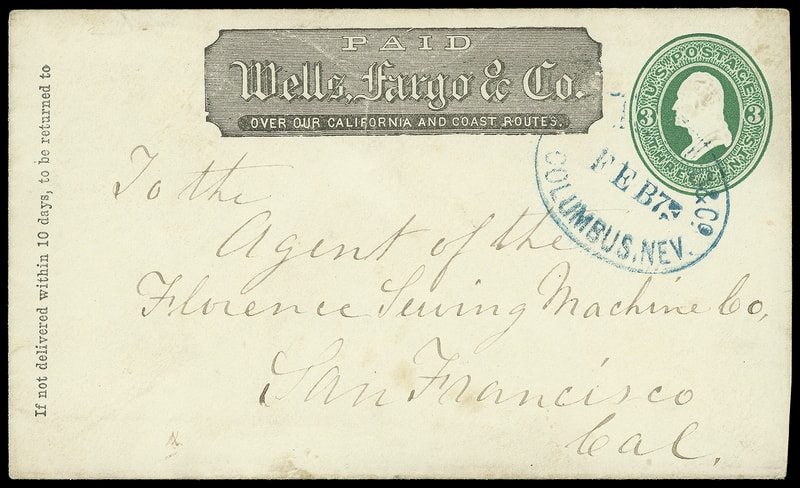 PAID
Wells, Fargo & Co.
OVER OUR CALIFORNIA AND COAST ROUTES.
U.S. POSTAGE
3 3
& Co.
FEB 7
COLUMBUS, NEV.
To the
Agent of the
Florence Sewing Machine Co,
San Francisco
Cal.
If not delivered within 10 days, to be returned to